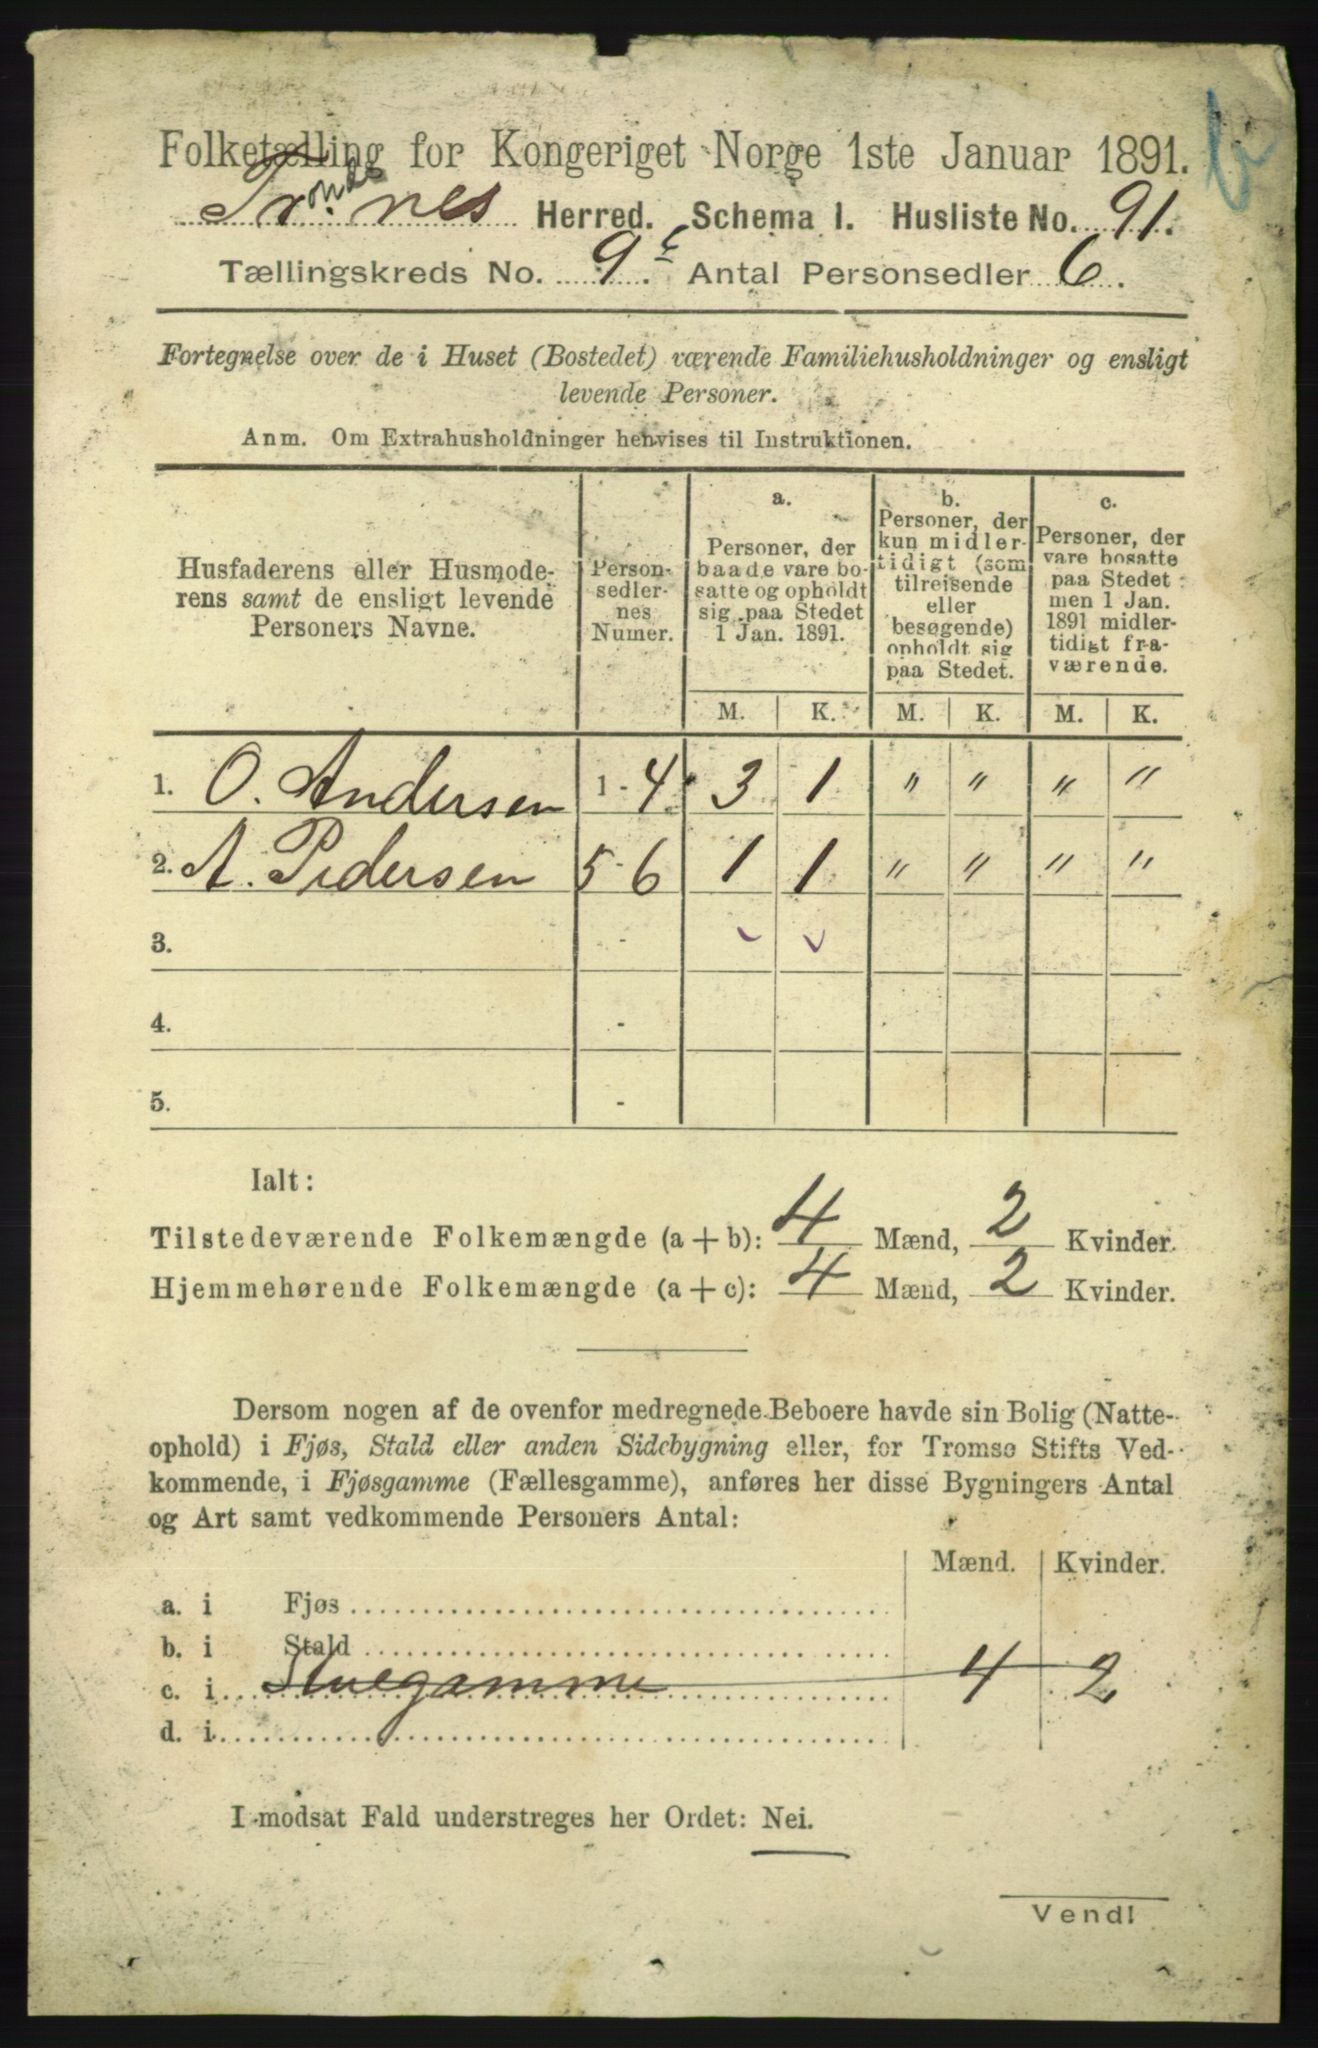 Folketælling for Kongeriget Norge 1ste Januar 1891.
Trondenes Herred. Schema 1. Husliste No. 91.
Tællingskreds No. 9 c. Antal Personsedler 6.
Fortegnelse over de i Huset (Bostedet) værende Familiehusholdninger og ensligt
levende Personer.
Anm. Om Extrahusholdninger henvises til Instruktionen.
Husfaderens eller Husmode-
rens samt de ensligt levende
Personers Navne.
Person-
sedler-
nes
Numer.
a.
Personer, der
baade vare bo-
satte og opholdt
sig paa Stedet
1 Jan. 1891.
b.
Personer, der
kun midler-
tidigt (som
tilreisende
eller
besøgende)
opholdt sig
paa Stedet.
c.
Personer, der
vare bosatte
paa Stedet
men 1 Jan.
1891 midler-
tidigt fra-
værende.
M. K. M. K. M. K.
1. O. Andersen 1 - 4 3 1 " " " "
2. A. Pedersen 5 - 6 1 1 " " " "
3. -
4. -
5. -
Ialt:
Tilstedeværende Folkemængde (a + b): 4 Mænd, 2 Kvinder.
Hjemmehørende Folkemængde (a + c): 4 Mænd, 2 Kvinder.
Dersom nogen af de ovenfor medregnede Beboere havde sin Bolig (Natte-
ophold) i Fjøs, Stald eller anden Sidebygning eller, for Tromsø Stifts Ved-
kommende, i Fjøsgamme (Fællesgamme), anføres her disse Bygningers Antal
og Art samt vedkommende Personers Antal:
Mænd. Kvinder.
a. i Fjøs
b. i Stald
c. i Stuegamme 4 2
d. i
I modsat Fald understreges her Ordet: Nei.
Vend!